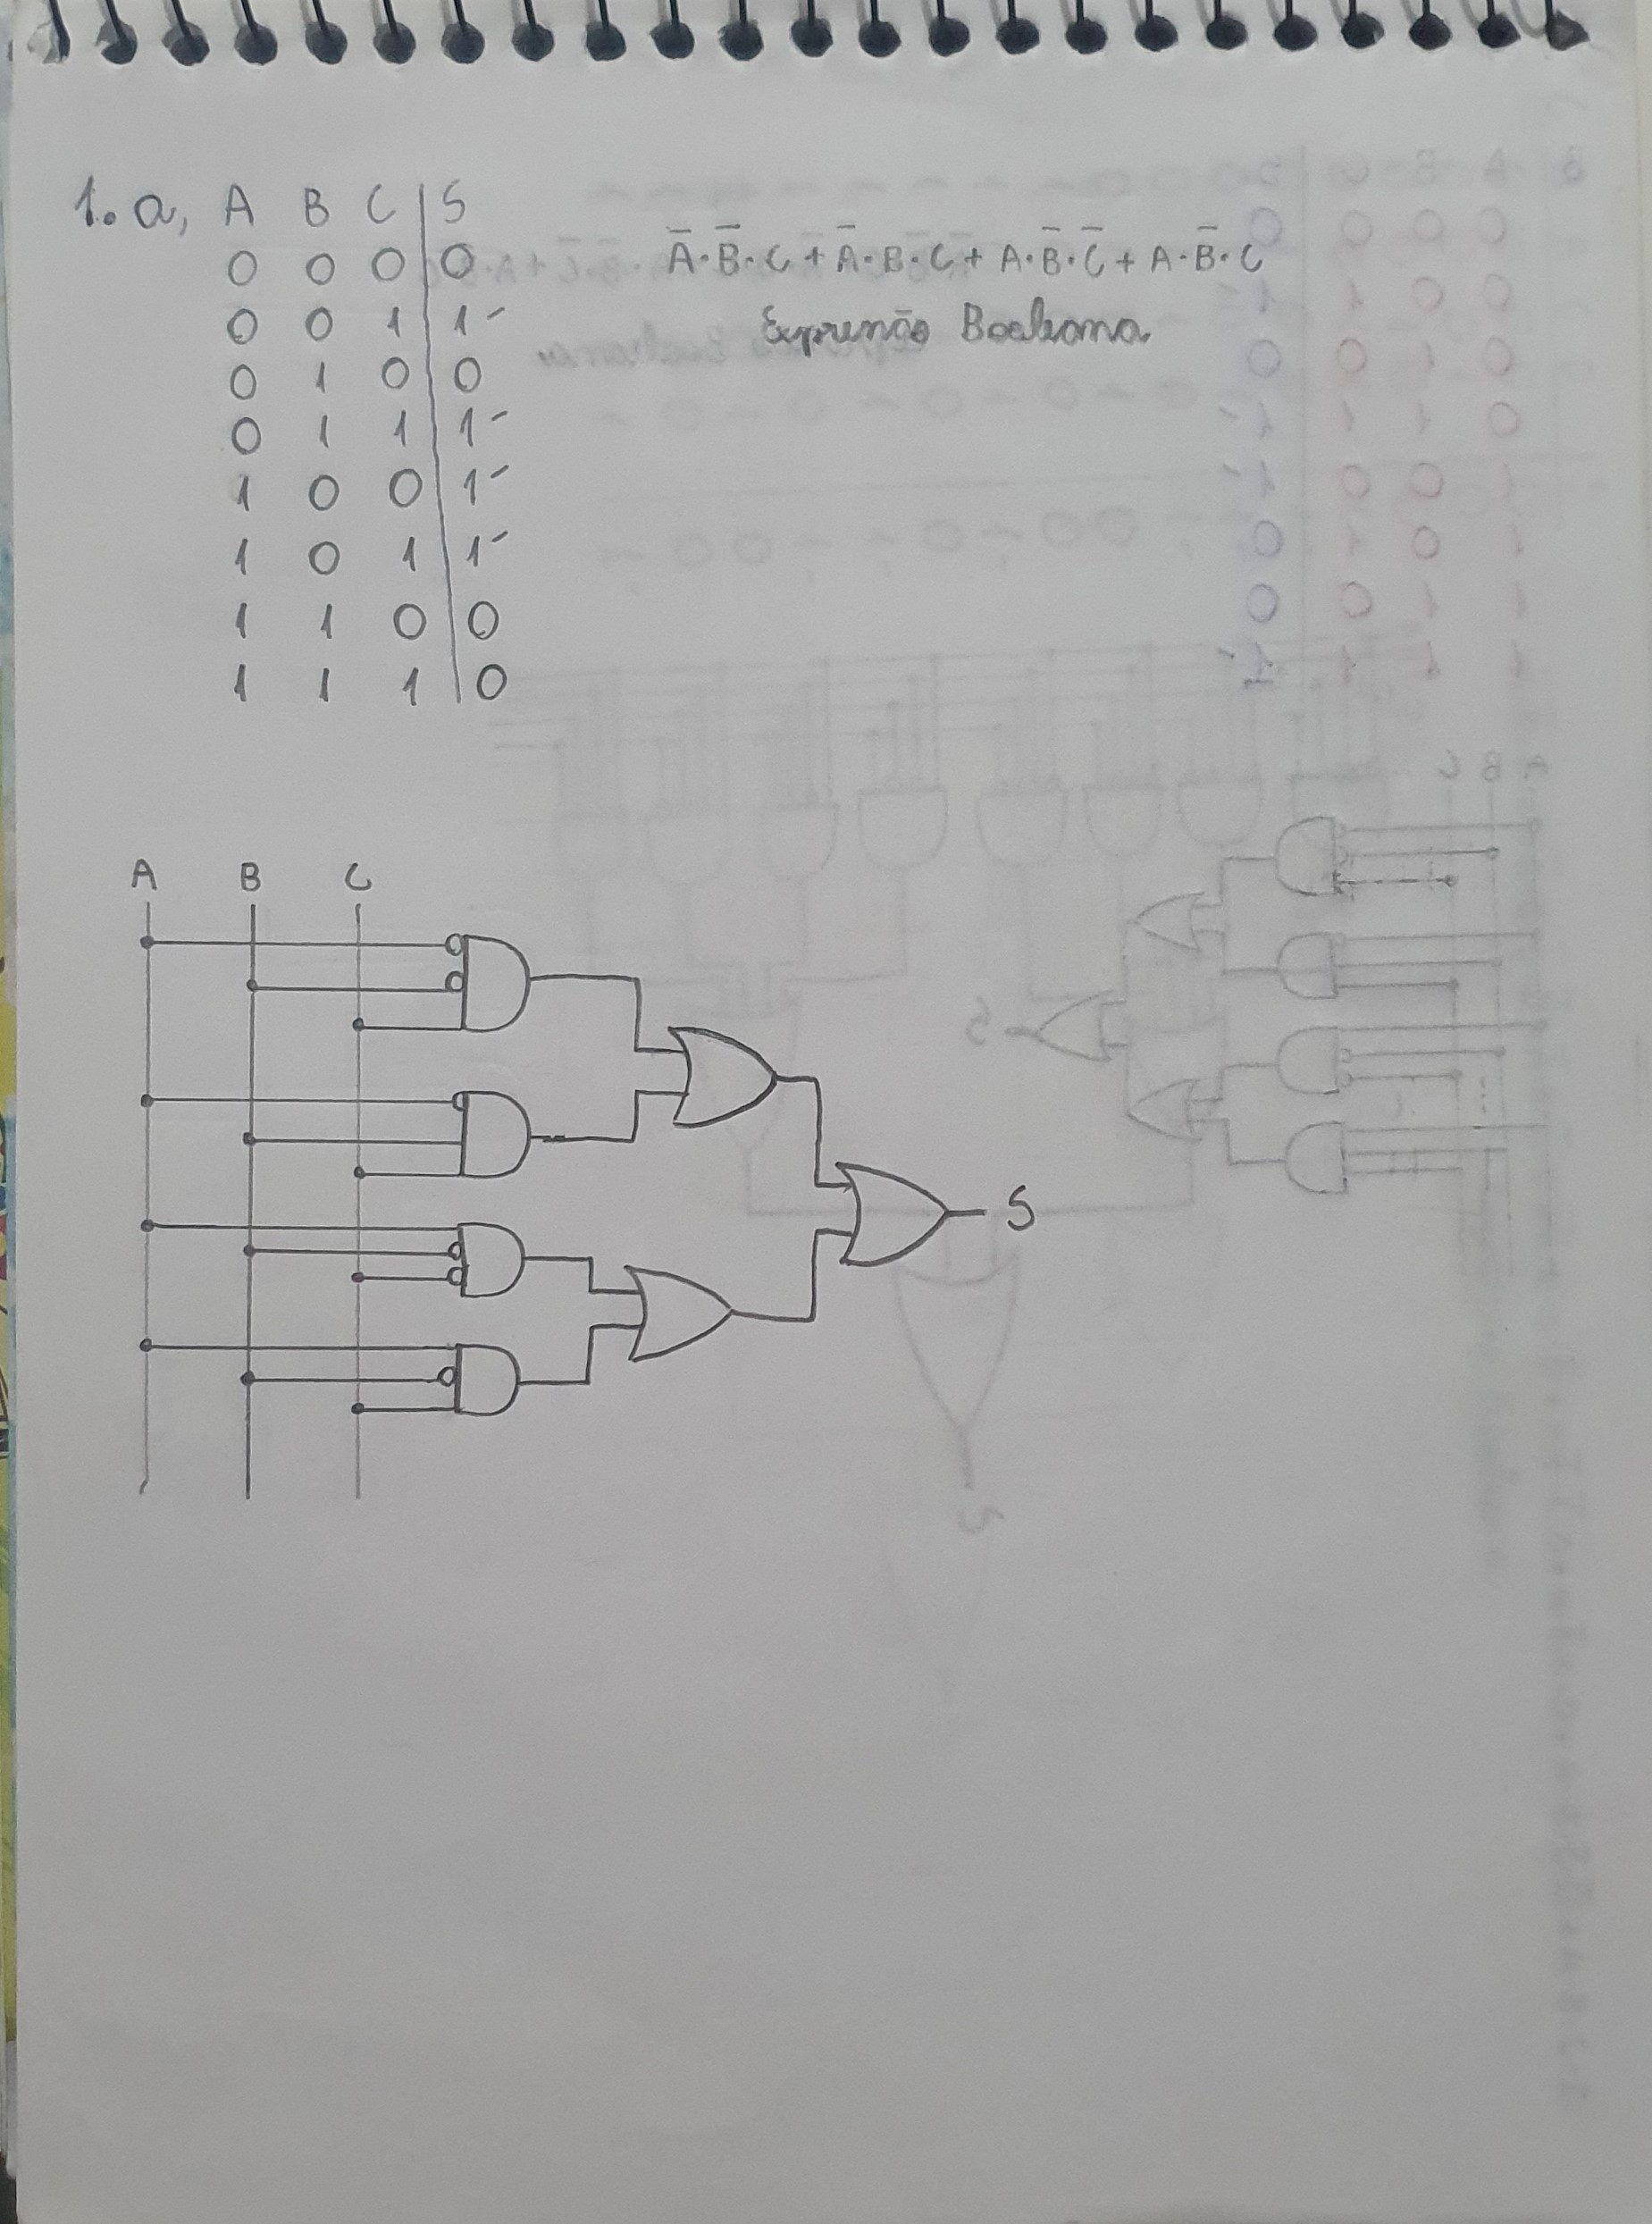 1. a, A B C | S
0 0 0 | 0
0 0 1 | 1
0 1 0 | 0
0 1 1 | 1
1 0 0 | 1
1 0 1 | 1
1 1 0 | 0
1 1 1 | 0
A̅·B̅·C + A̅·B·C + A·B̅·C̅ + A·B̅·C
Expressão Booleana
A B C
S